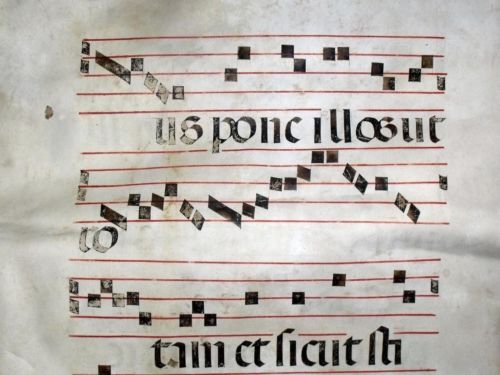 us pone illos ut
ro
tam et sicut sti